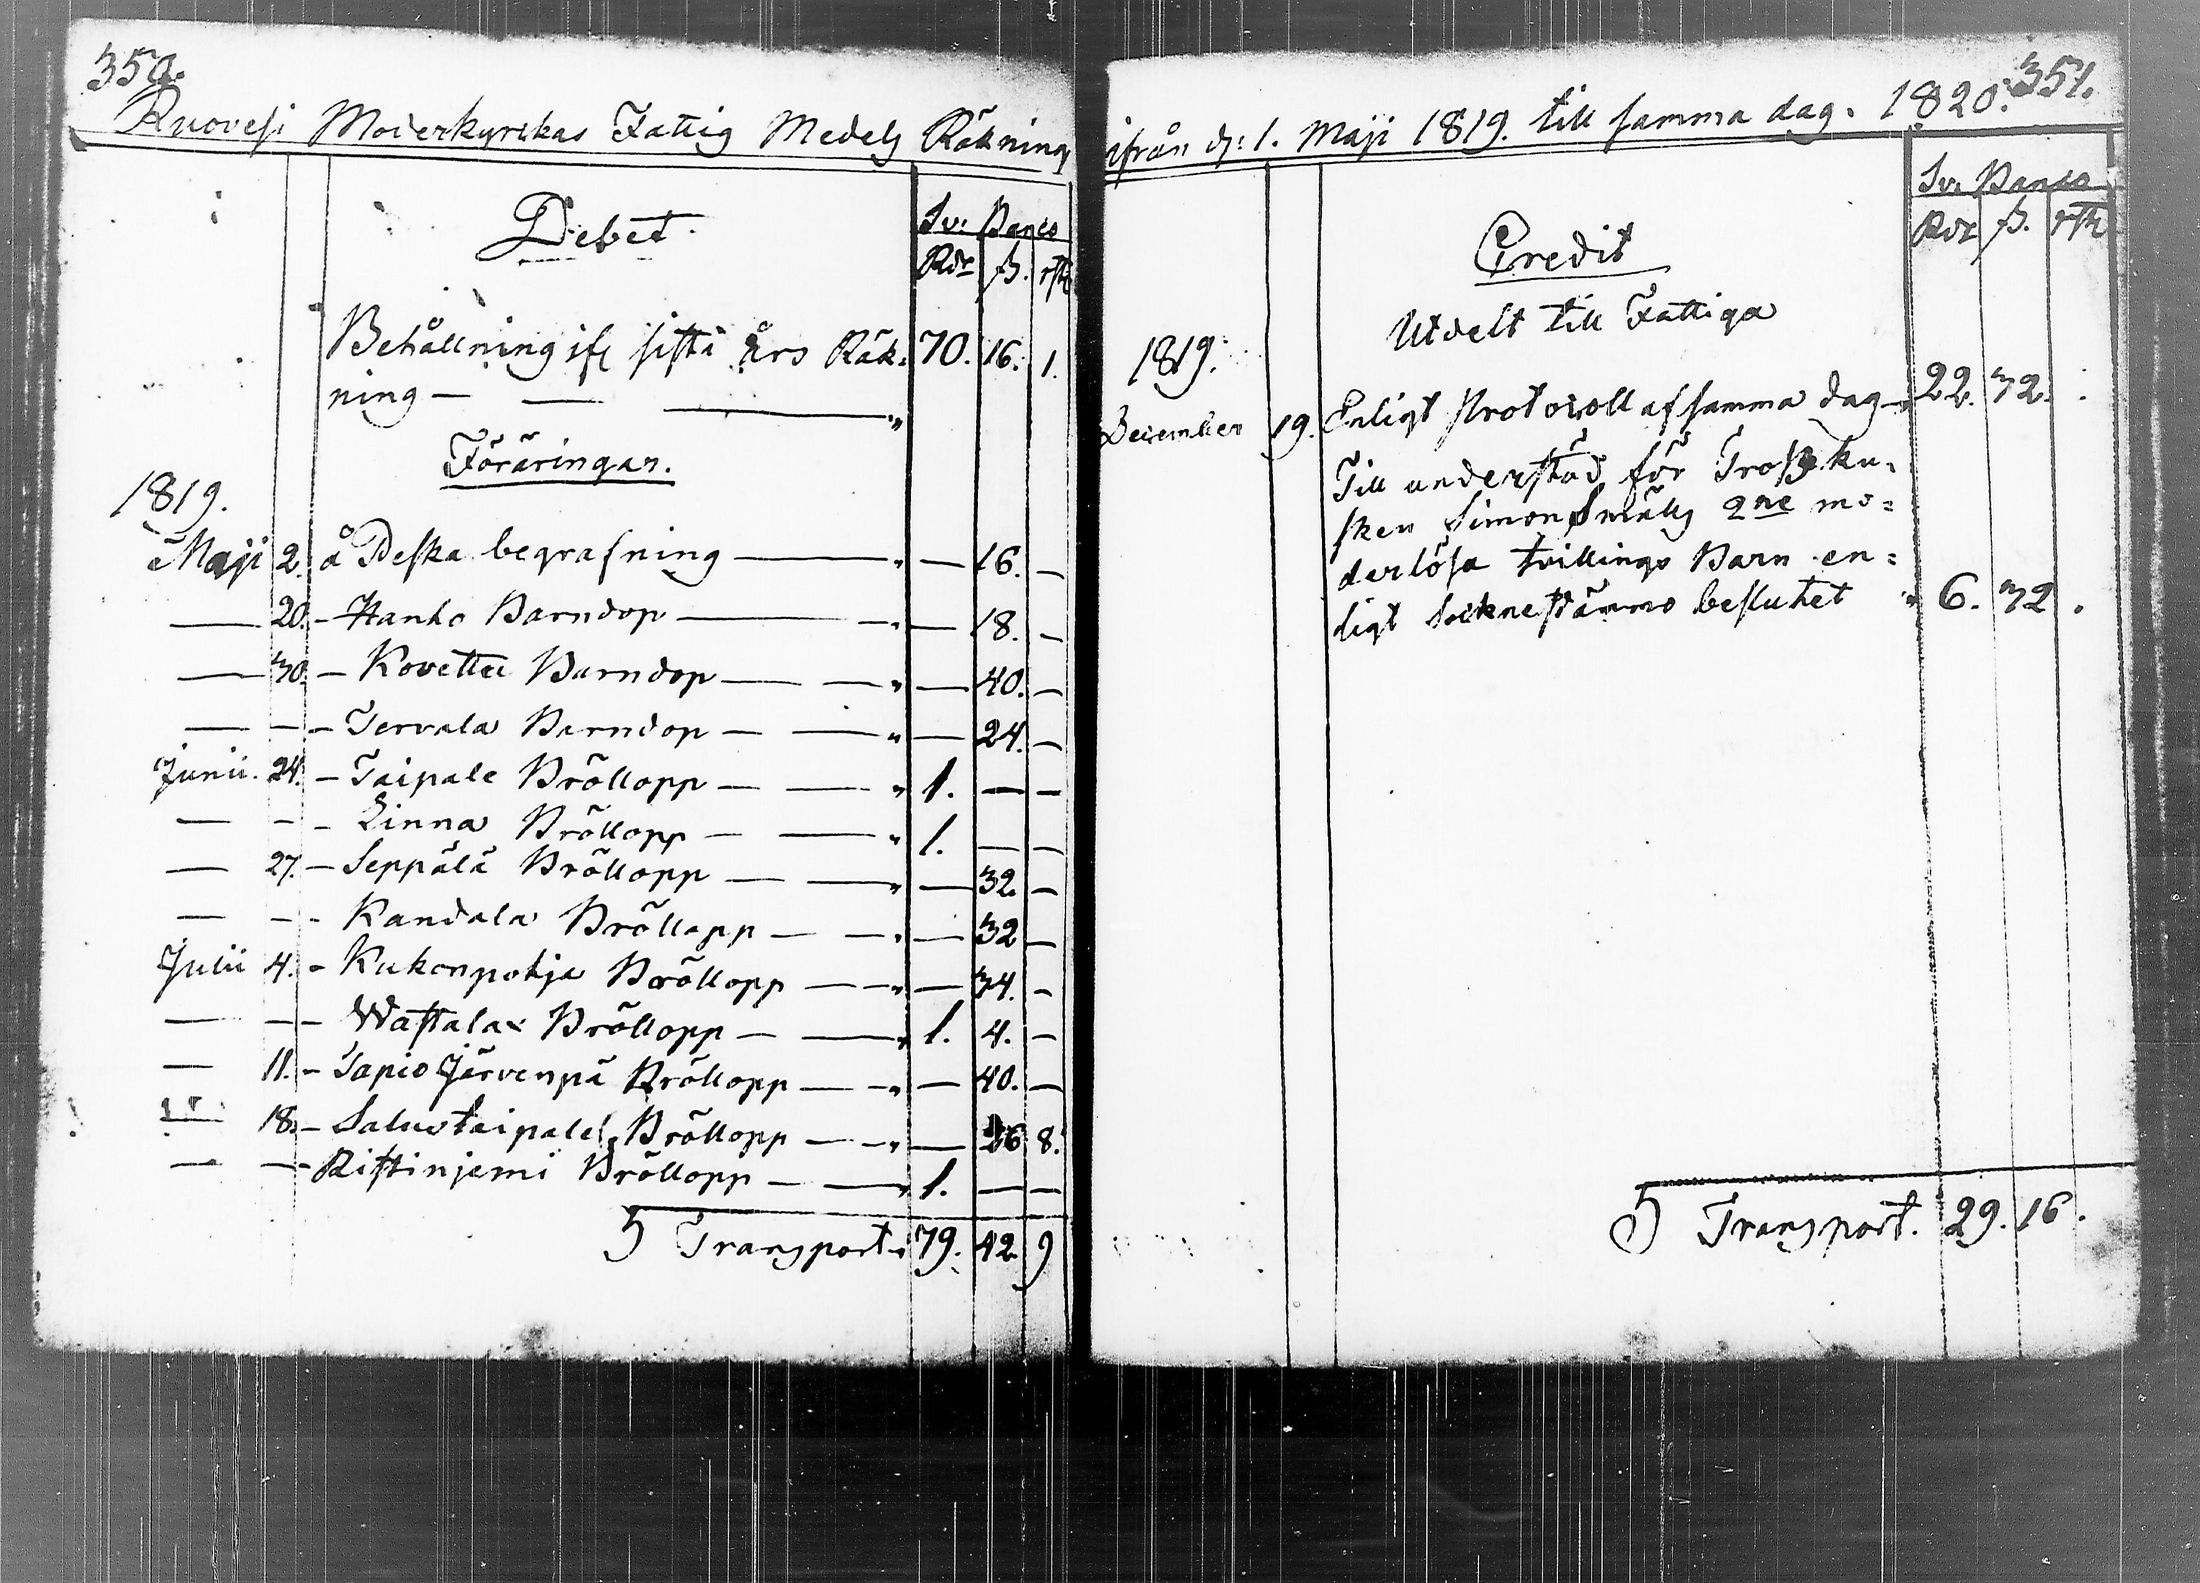 350.
Ruovesi Moderkyrkas Fattig Medels Räkning
Debet.
Sv: Banco
Rdr ß. rst
Behållning ifr sista års Räk= 70. 16. 1.
ning — — — "
Föräringar.
1819.
Maji 2. å Peska begrafning — " — 16. —
— 20. - Hanho Barndop — — " — 18. —
— 30. - Kovettu Barndop — — " — 40. —
— — - Tervala Barndop — — " — 24. —
Junii. 24. - Taipale Bröllopp — — " 1. — —
— - - Linna Bröllopp — — " 1. — —
— 27. - Seppälä Bröllopp — — " — 32. —
— - - Kandala Bröllopp — — " — 32 —
Julii 4. - Kukonpohja Bröllopp — — " — 34. —
— — - Wastala Bröllopp — — " 1. 4. —
— 11. - Tapio Järvenpä Bröllopp — — " — 40. —
— 18. - Salustaipale Bröllopp — — " — 26 8.
— — - Ristinjemi Bröllopp — — " 1. — —
Transport. 79. 42. 9
351.
ifrån d: 1. Maji 1819. till samma dag. 1820.
Sv. Banco
Rdr ß. rst
Credit
Utdelt till Fattiga
1819.
December 19. Enligt Protocoll af samma dag " 22. 32. .
Till understöd för Trossku=
sken Simon Smälls 2ne mo=
derlösa tvillings Barn en=
ligt Socknestämmo beslutet " 6. 32 .
Transport. 29. 16.